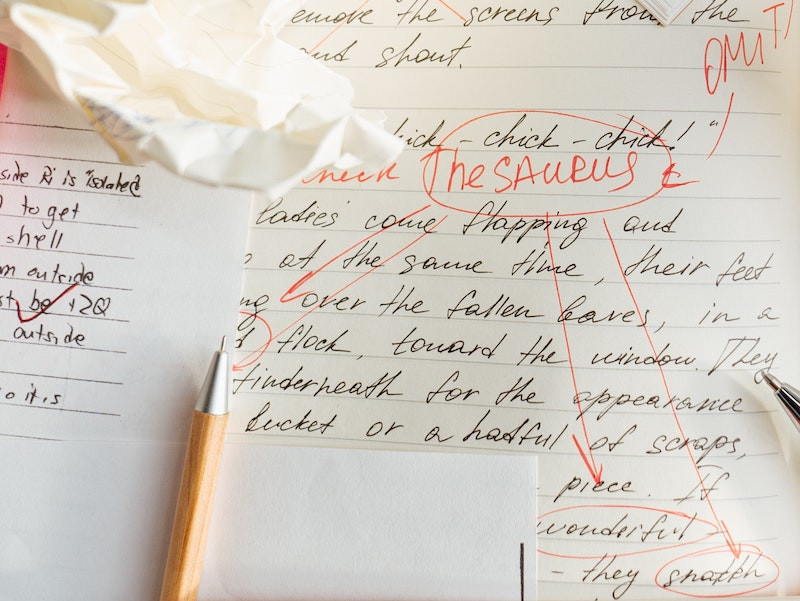 emove the screens from the
and shout.
OMIT
chick - chick - chick!"
check THESAURUS
ladies come flapping and
at the same time, their feet
ng over the fallen leaves, in a
flock, toward the window. They
underneath for the appearance
bucket or a hatful of scraps,
piece. If
wonderful -
- they snatch
side Ri is "isolated
to get
shell
m outside
st be +2Q
outside
o it is